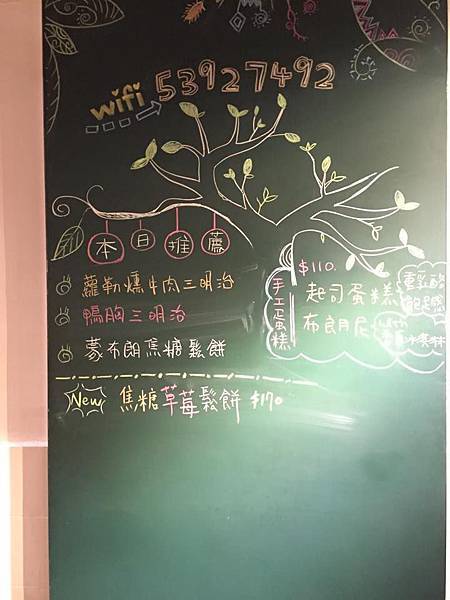 wifi 53927492
本日推薦
蘿勒燻牛肉三明治
鴨胸三明治
蒙布朗焦糖鬆餅
New 焦糖草莓鬆餅 $170
手工蛋糕
$110.
起司蛋糕
重乳酪
飽足感
布朗尼
with
冰淇淋